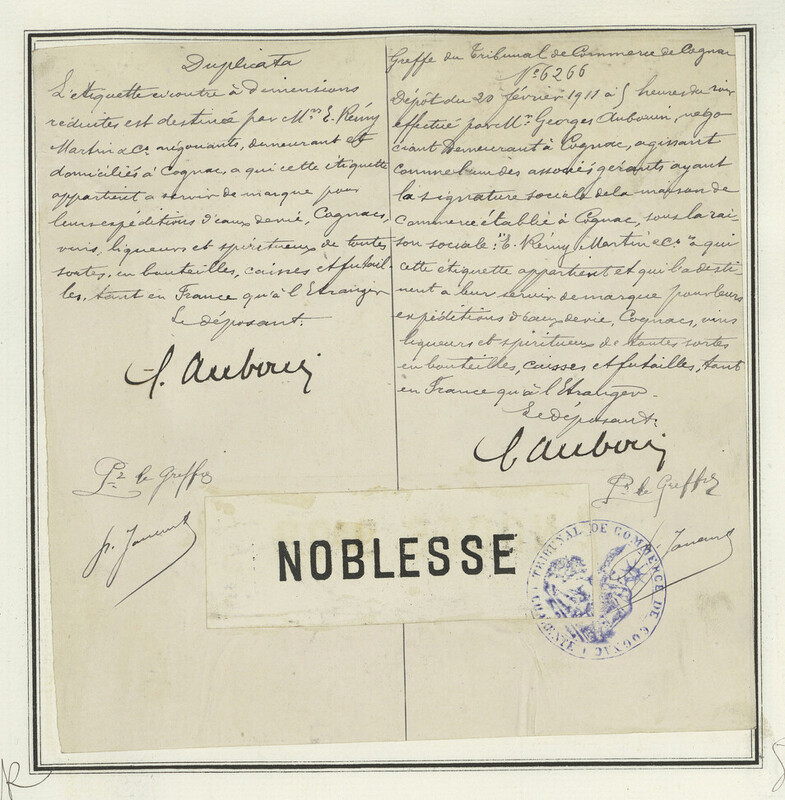 Duplicata
L'étiquette ci contre à dimensions
réduites est destinée par Mrs E. Rémy
Martin & Co. négociants, demeurant et
domiciliés à Cognac, a qui cette étiquette
appartient a servir de marque pour
leurs expéditions d'eaux de vie, Cognacs,
vins, liqueurs et spiritueux de toutes
sortes, en bouteilles, caisses et futail-
les, tant en France qu'à l'Etranger
Le déposant:
Aubouin
Pr le Greffier
Greffe du Tribunal de Commerce de Cognac
No 6266
Dépôt du 20 février 1911 à 5 heures du soir
effectué par Mr. Georges Aubouin, négo
ciant demeurant à Cognac, agissant
comme l'un des associés gérants ayant
la signature sociale de la maison de
Commerce établie à Cognac, sous la rai-
son sociale: "E. Rémy Martin & Co" à qui
cette étiquette appartient et qui l'a desti
nent a leur servir de marque pour leurs
expéditions d'eaux de vie, Cognacs, vins
liqueurs et spiritueux de toutes sortes
en bouteilles, caisses et futailles, tant
en France qu'à l'Etranger.
Le déposant:
Aubouin
Pr le Greffier
NOBLESSE
TRIBUNAL DE COMMERCE DE COGNAC
(CHARENTE)